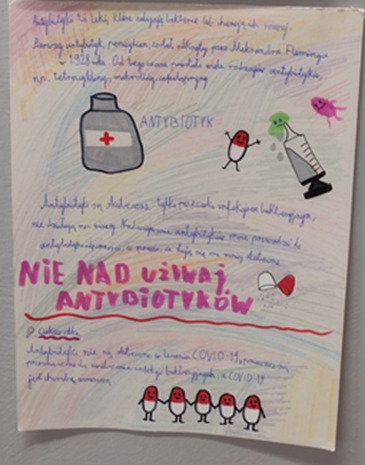 Antybiotyki to leki, które zabijają bakterie lub
Pierwszy antybiotyk, penicylina został odkryty przez Aleksandra Fleminga
w 1928 roku. Od tego czasu powstało wiele rodzajów antybiotyków,
np. tetracykliny, makrolidy, cefalosporyny.
ANTYBIOTYK
Antybiotyki są skuteczne tylko przeciwko infekcjom bakteryjnym,
nie działają na wirusy. Nadużywanie antybiotyków może prowadzić do
antybiotykooporności, a mniej skuteczne.
NIE NAD UŻIWAJ
ANTYBIOTYKÓW
Ciekawostka
Antybiotyki nie są skuteczne w leczeniu COVID-19, ponieważ
infekcji bakteryjnych, a COVID-19
jest chorobą wirusową